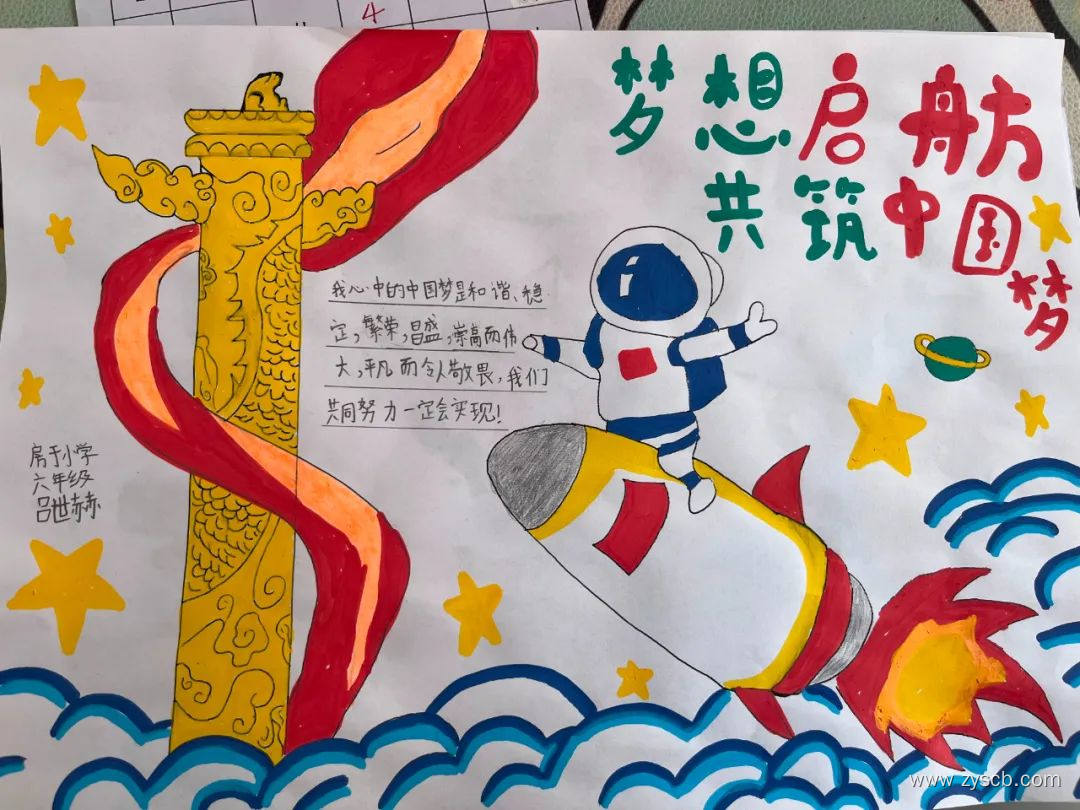 4
梦想启航
共筑中国梦
我心中的中国梦是和谐、稳
定,繁荣,昌盛,崇高而伟
大,平凡而令人敬畏,我们
共同努力一定会实现!
房于小学
六年级
吕世赫
www.zyscb.com